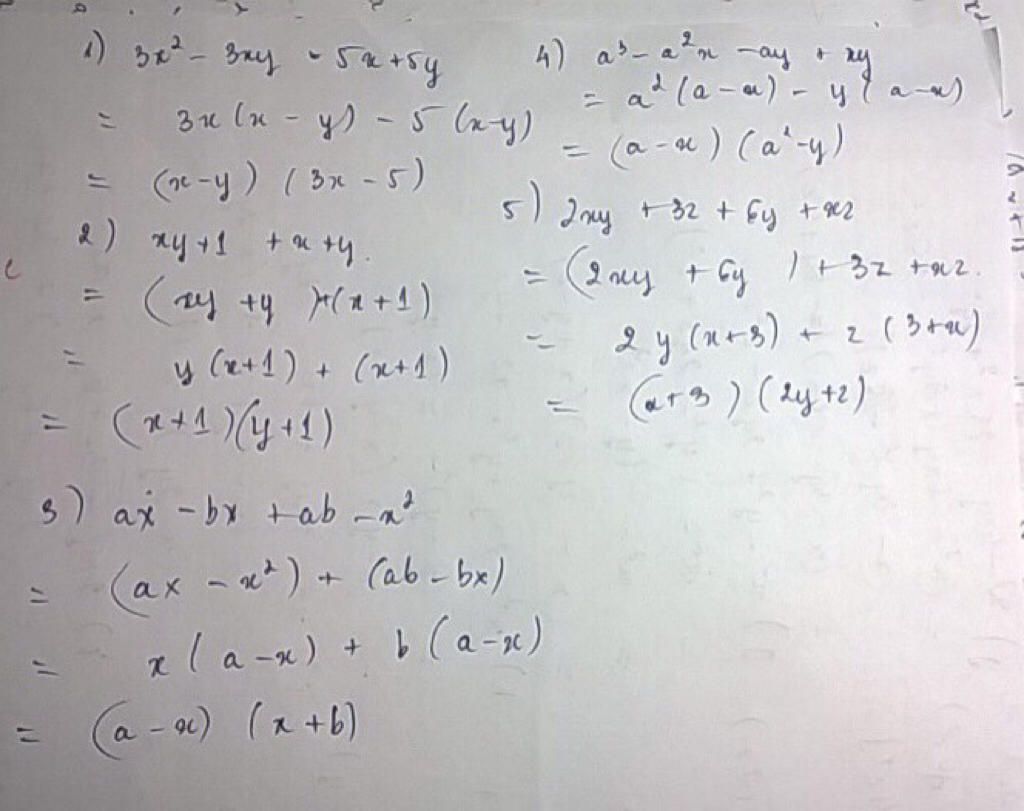 1) 3x² - 3xy - 5x + 5y
= 3x (x - y) - 5 (x-y)
= (x-y) (3x - 5)
2) xy + 1 + x + y.
= (xy + y) + (x + 1)
= y (x+1) + (x+1)
= (x+1)(y+1)
3) ax - bx + ab - x²
= (ax - x²) + (ab - bx)
= x (a - x) + b (a - x)
= (a - x) (x + b)
4) a³ - a²x - ay + xy
= a² (a - x) - y (a - x)
= (a - x) (a² - y)
5) 2xy + 3z + 6y + xz
= (2xy + 6y) + 3z + xz.
= 2y (x+3) + z (3+x)
= (x+3) (2y+z)